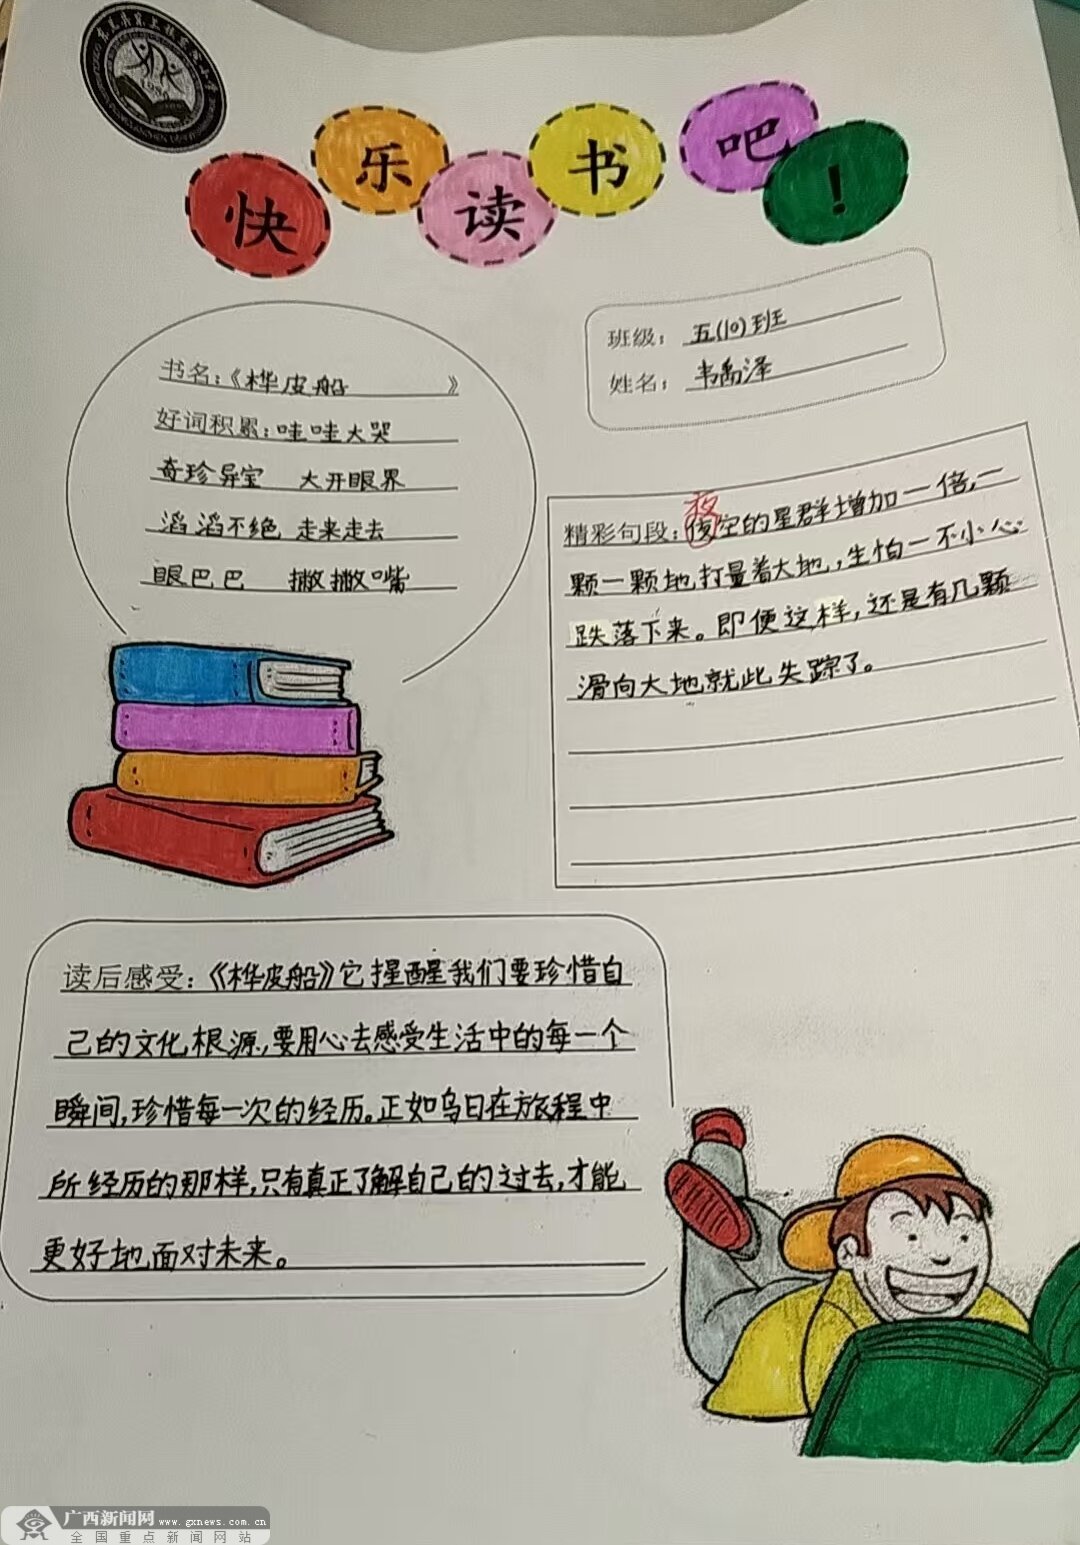 1994
快乐读书吧！
班级：五(10)班
姓名：韦禹泽
书名：《桦皮船》
好词积累：哇哇大哭
奇珍异宝 大开眼界
滔滔不绝 走来走去
眼巴巴 撇撇嘴
夜
精彩句段：夜空的星群增加一倍，一
颗一颗地打量着大地，生怕一不小心
跌落下来。即便这样，还是有几颗
滑向大地就此失踪了。
读后感受：《桦皮船》它提醒我们要珍惜自
己的文化根源，要用心去感受生活中的每一个
瞬间，珍惜每一次的经历。正如乌日在旅程中
所经历的那样，只有真正了解自己的过去，才能
更好地面对未来。
广西新闻网 www.gxnews.com.cn
全国重点新闻网站